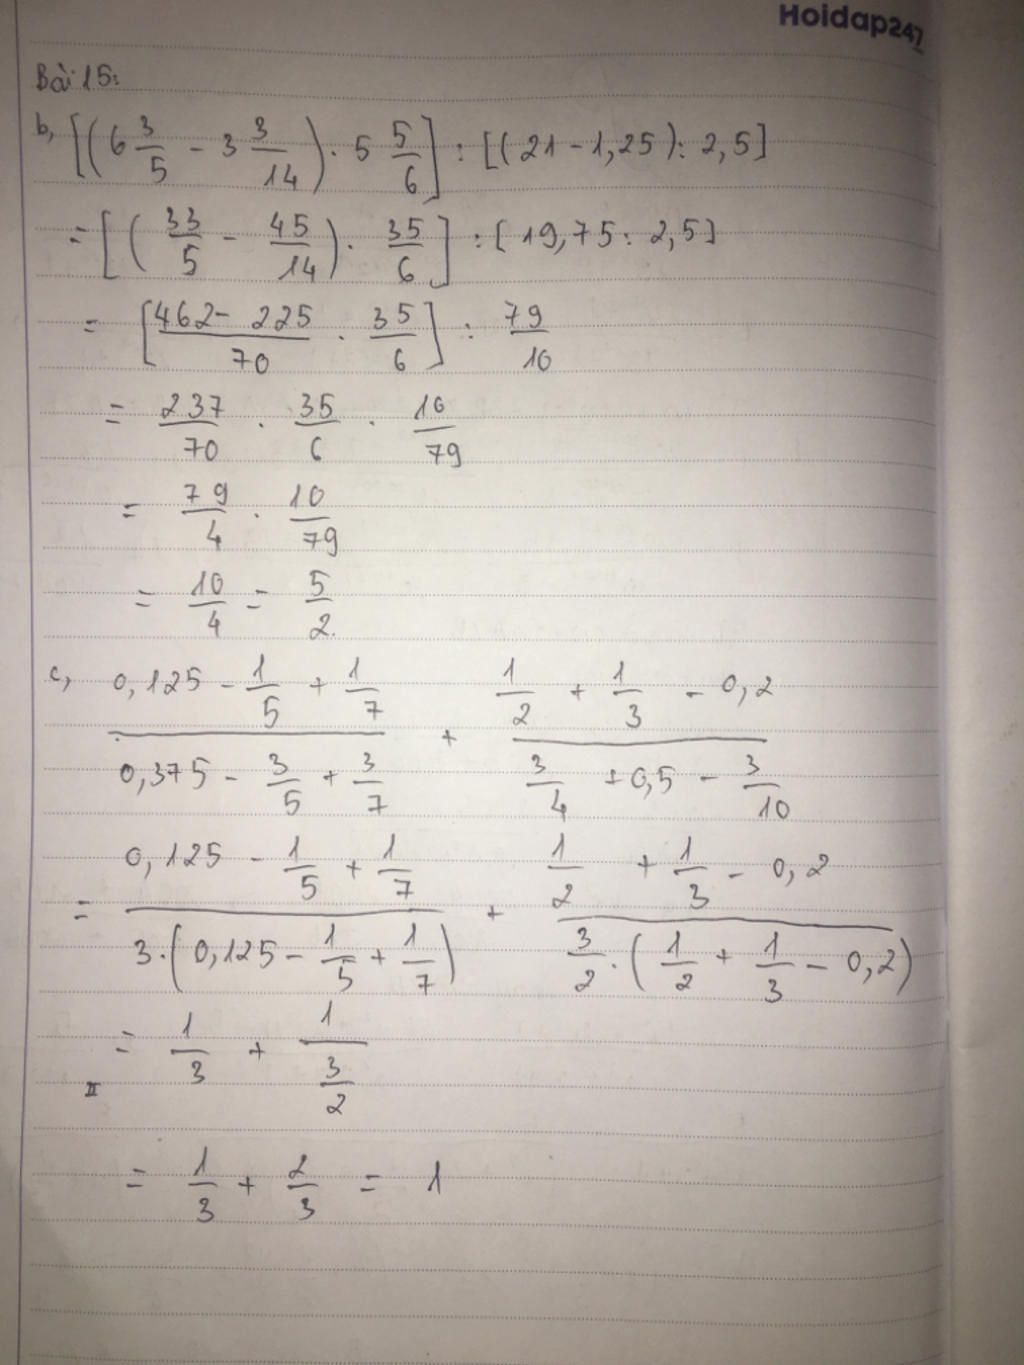 Hoidap247
Bài 15:
b, [(6 3/5 - 3 3/14) . 5 5/6] : [(21 - 1,25) : 2,5]
= [(33/5 - 45/14) . 35/6] : [19,75 : 2,5]
= [(462 - 225)/70 . 35/6] : 79/10
= 237/70 . 35/6 . 10/79
= 79/4 . 10/79
= 10/4 = 5/2.
c, (0,125 - 1/5 + 1/7)/(0,375 - 3/5 + 3/7) + (1/2 + 1/3 - 0,2)/(3/4 + 0,5 - 3/10)
= (0,125 - 1/5 + 1/7)/(3.(0,125 - 1/5 + 1/7)) + (1/2 + 1/3 - 0,2)/(3/2 . (1/2 + 1/3 - 0,2))
= 1/3 + 1/(3/2)
= 1/3 + 2/3 = 1